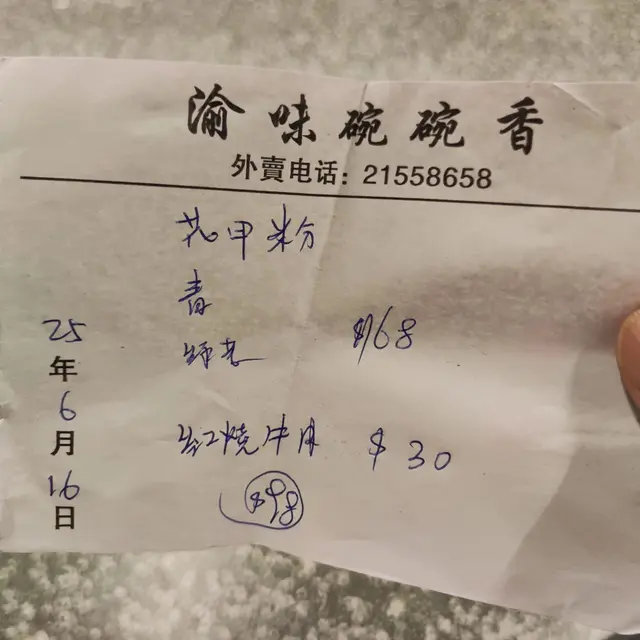 渝味碗碗香
外賣电话: 21558658
花甲粉
青
$68
红燒牛月 $30
$98
25
年
6
月
16
日